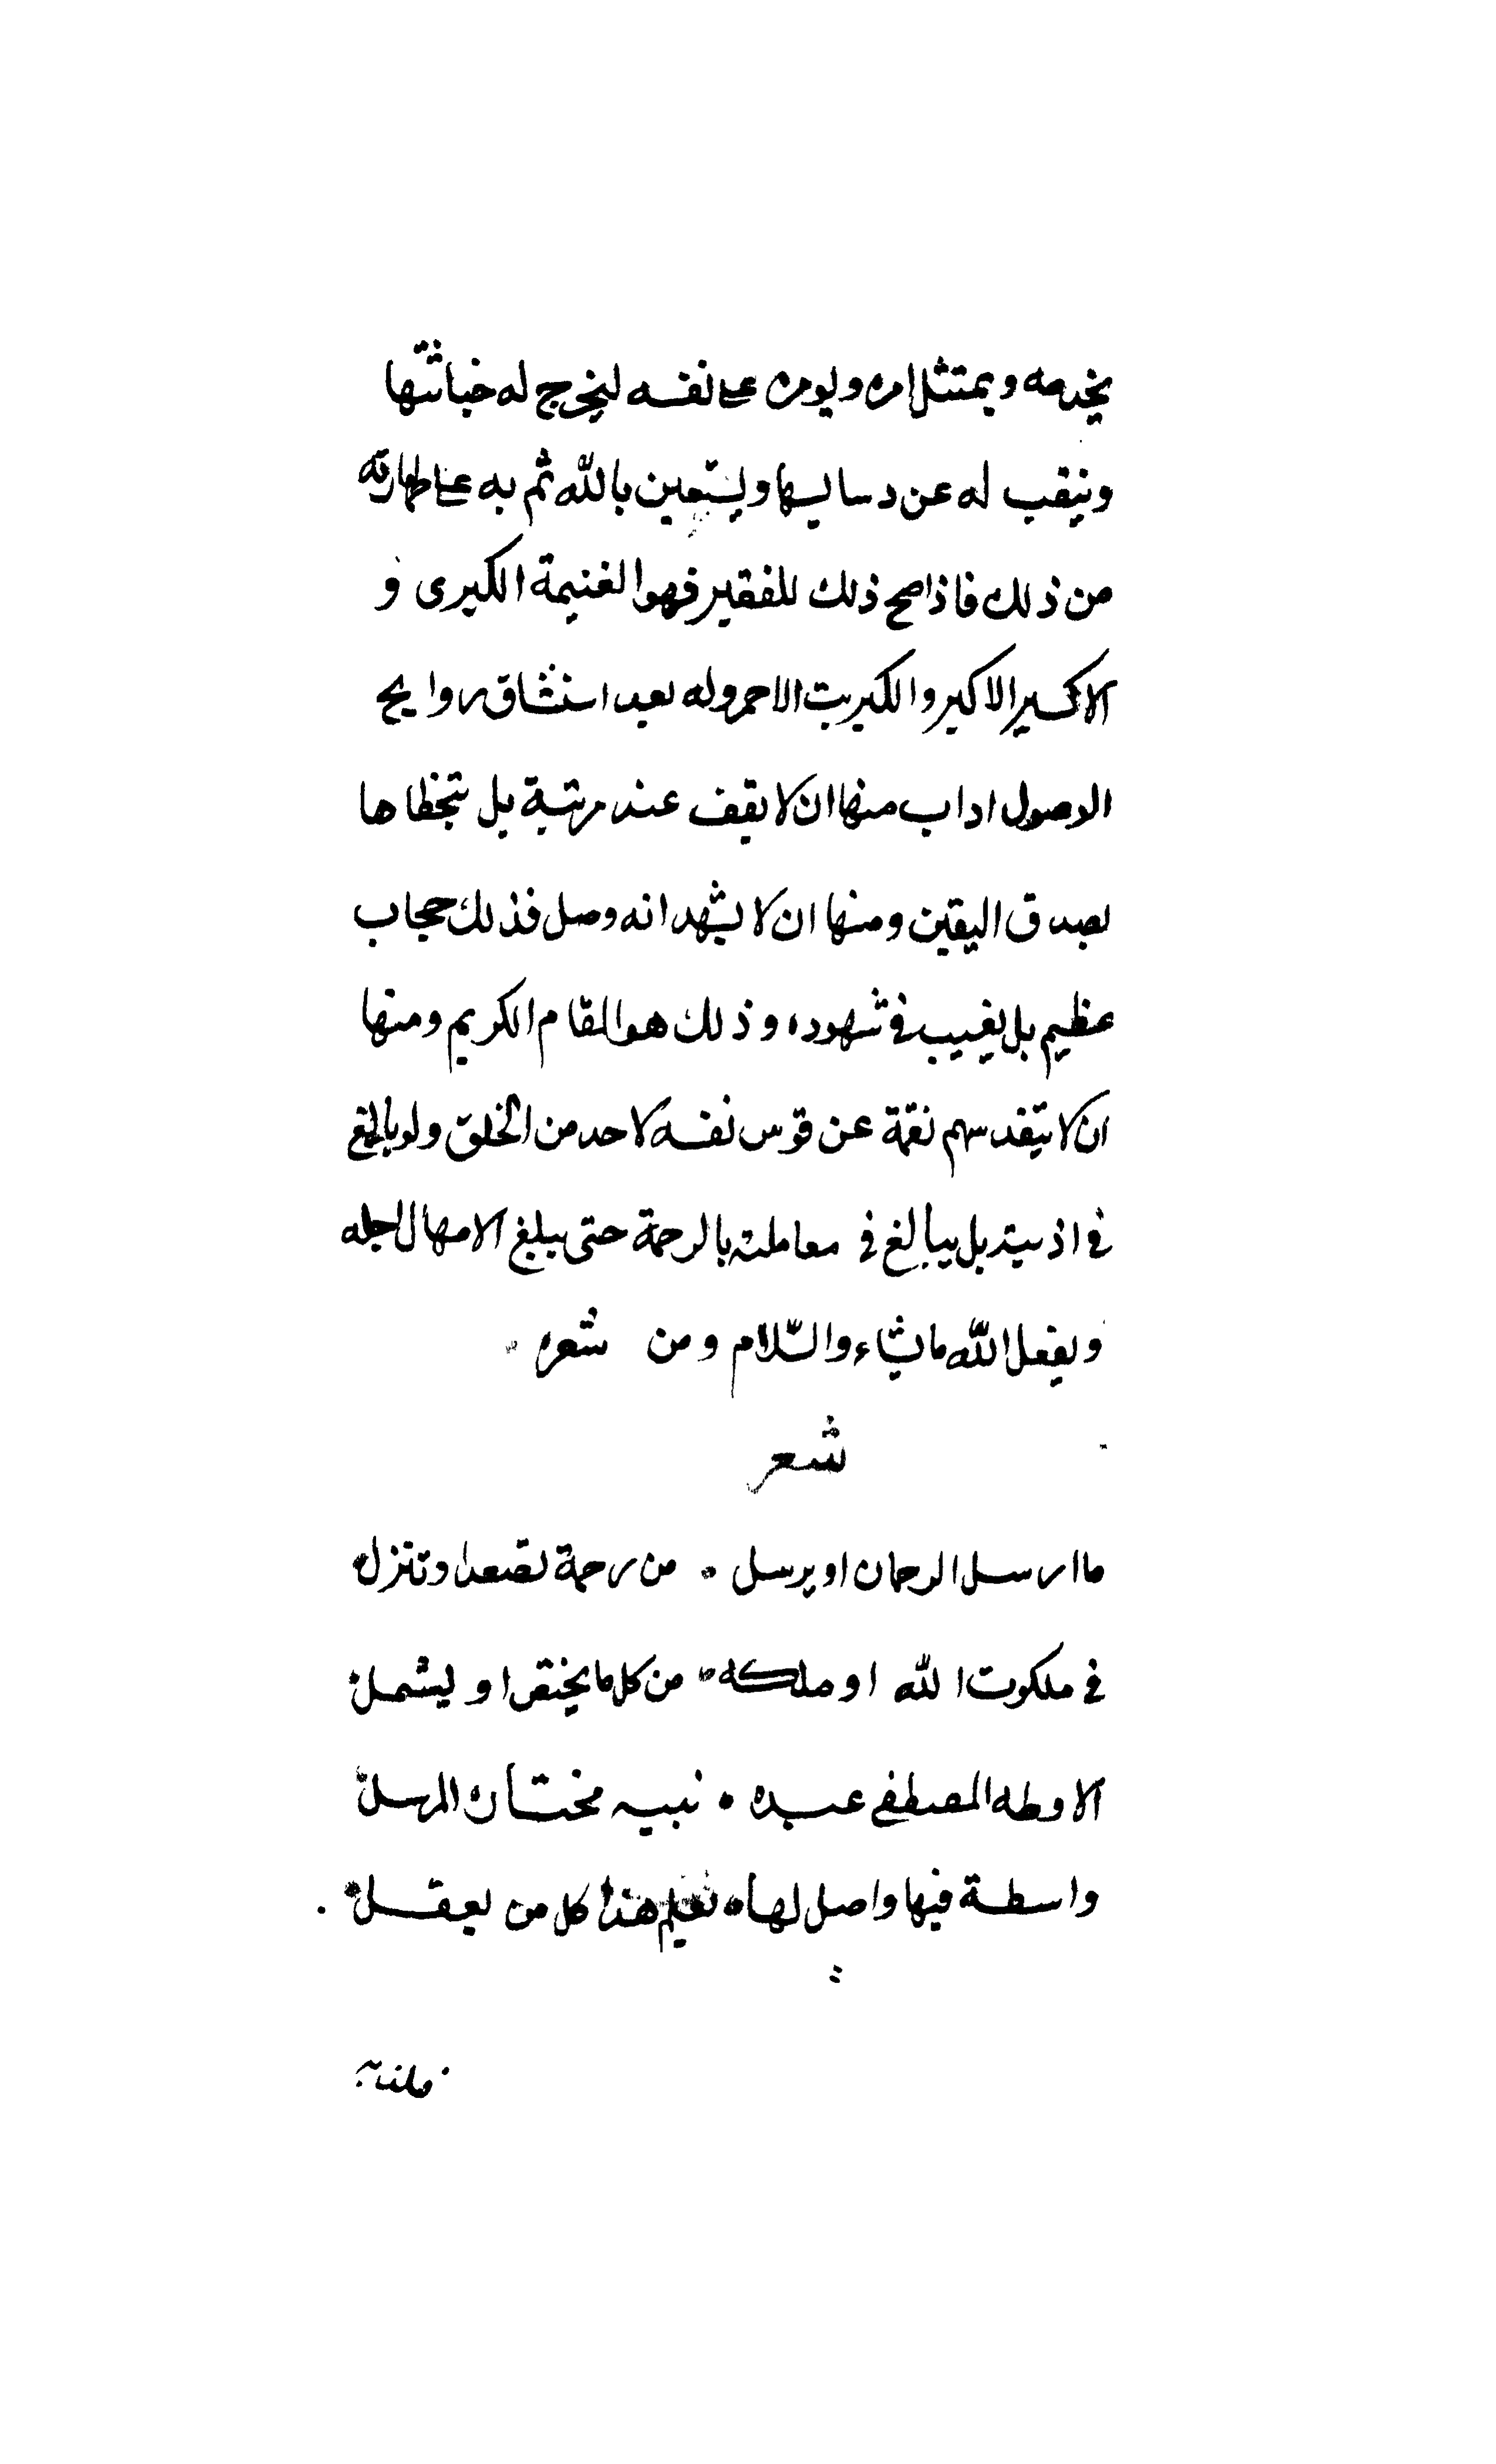 يخدمه ويمتثل امره ويومره على نفسه ليخرج له خباثتها
وينقب له عن دسايسها ويستعين بالله ثم به على طهارته
من ذلك فاذا صح ذلك للفقير فهو الغنيمة الكبرى و
الاكسير الاكبر والكبريت الاحمر وله بعد استنشاق روايح
الوصول اداب منها ان لا يقف عند مرتبة بل يتخطاها
بصدق اليقين ومنها ان لا يشهد انه وصل فذلك حجاب
عظيم بل يغيب في شهوده وذلك هو المقام الكريم ومنها
ان لا ينفد سهم نقمة عن قوس نفسه لاحد من الخلق ولو بالغ
في اذيته بل يبالغ في معاملته بالرحمة حتى يبلغ الامهال اجله
ويفعل الله ما يشاء والسّلام ومن شعره
شعر
ما ارسل الرحمان او يرسل • من رحمة تصعد او تنزل
في ملكوت الله او ملكه • من كل ما يختص او يشمل
الا وطه المصطفى عبده • نبيه مختاره المرسل
واسطة فيها واصل لها • يعلم هذا كل من يعقل